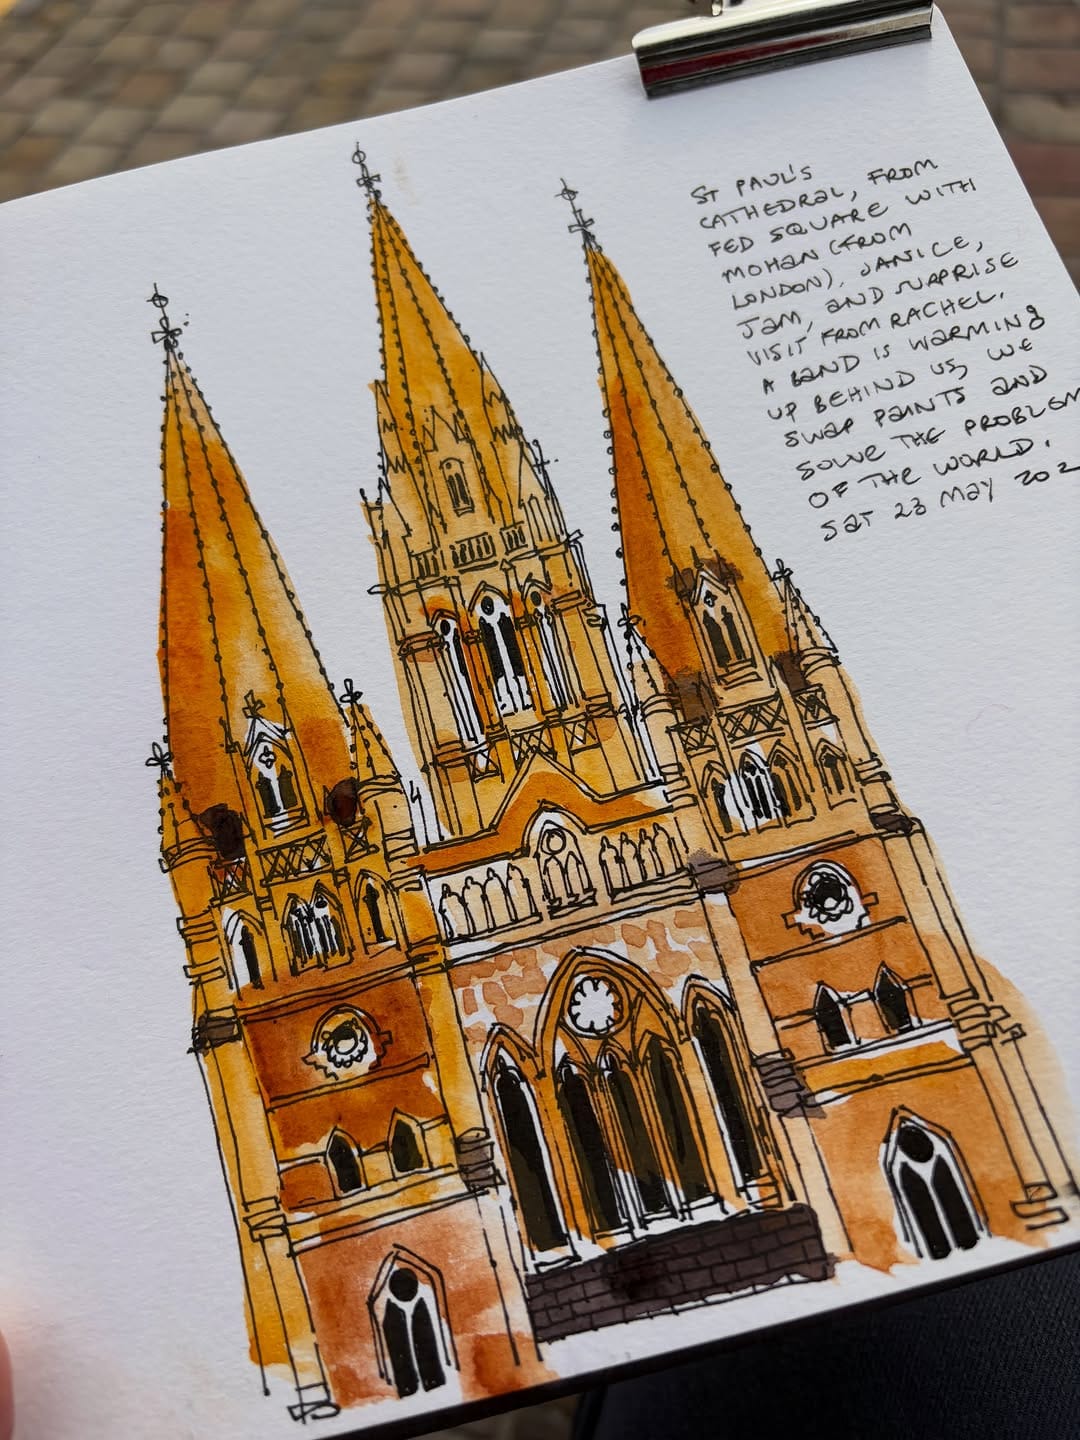 ST PAUL'S
CATHEDRAL, FROM
FED SQUARE WITH
MOHAN (FROM
LONDON), JANICE,
JAM, AND SURPRISE
VISIT FROM RACHEL.
A BAND IS WARMING
UP BEHIND US, WE
SWAP PAINTS AND
SOLVE THE PROBLEM
OF THE WORLD.
SAT 23 MAY 202